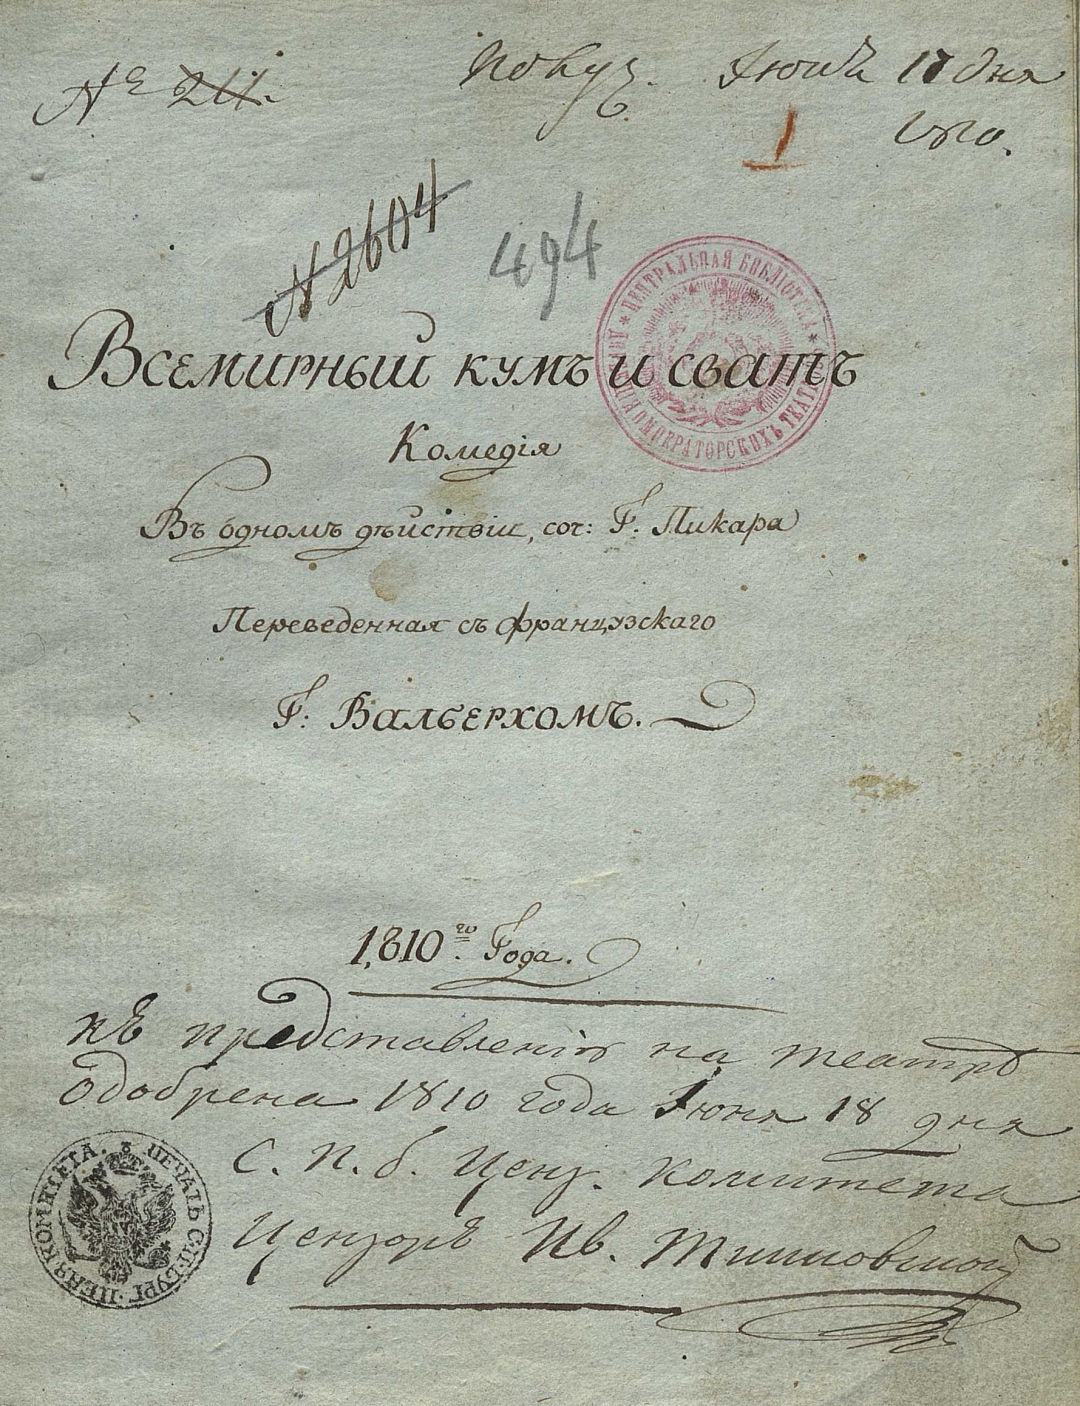 № 211.
Іюня 17 дня
1810.
1
№ 2604
494
Всемирный кумъ и сватъ
Комедія
Въ одномъ дѣйствіи, соч: Г. Пикара
Переведенная съ французскаго
Г. Валберхомъ.
1810го Года.
къ представленію на театрѣ
одобрена 1810 года Іюня 18 дня
С. П. б. Ценз. Комитета
Цензоръ Ив. Тимковской
ЦЕНТРАЛЬНАЯ БИБЛІОТЕКА
ИМПЕРАТОРСКИХЪ ТЕАТР
ПЕЧАТЬ С.П.БУРГ. ЦЕН. КОМИТЕТА.